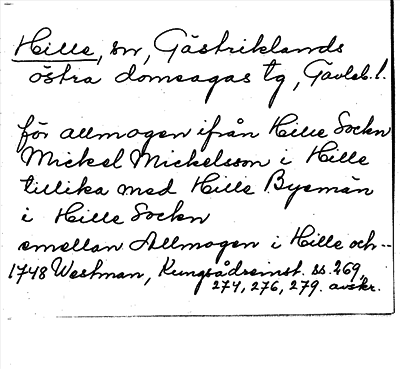 Hille, sn, Gästriklands
östra domsagas tg, Gävleb. l.
för allmogen ifrån Hille Sockn
Mickel Mickelsson i Hille
tillika med Hille Bysmän
i Hille Sockn
emellan Allmogen i Hille och--
1748 Westman, Kungsådreinst. ss. 269,
274, 276, 279. avskr.